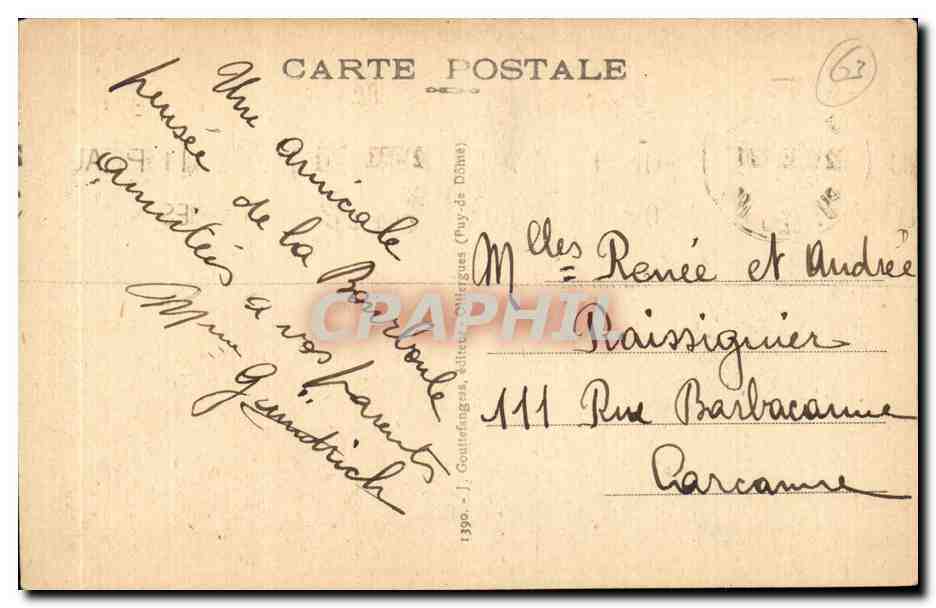 CARTE POSTALE
63
Une amicale
pensée de la Bourboule
amitiés a vos parents
Mme
1390. - J. Gouttefangeas, éditeur, Olliergues (Puy-de Dôme)
CPAPHIL
Mlles Renée et Andrée
Raissiguier
111 Rue Barbacanne
Carcanne